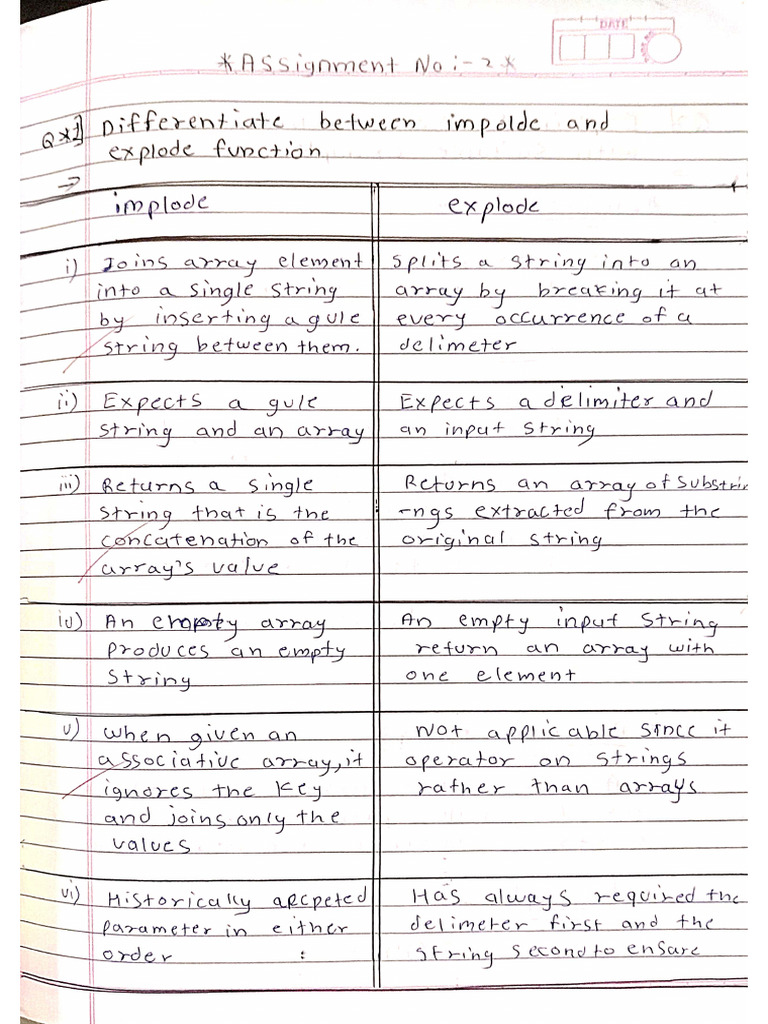 DATE
*Assignment No:-2*
Q*1] Differentiate between impolde and
explode function
→
implode
explode
i) Joins array element
into a single string
by inserting a gule
string between them.
splits a string into an
array by breaking it at
every occurrence of a
delimeter
ii) Expects a gule
string and an array
Expects a delimiter and
an input string
iii) Returns a single
string that is the
concatenation of the
array's value
Returns an array of substrin
-ngs extracted from the
original string
iv) An empty array
produces an empty
string
An empty input string
return an array with
one element
v) when given an
associative array, it
ignores the key
and joins only the
values
Not applicable since it
operator on strings
rather than arrays
vi) Historically
parameter in either
order :
Has always required the
delimeter first and the
string second to ensare